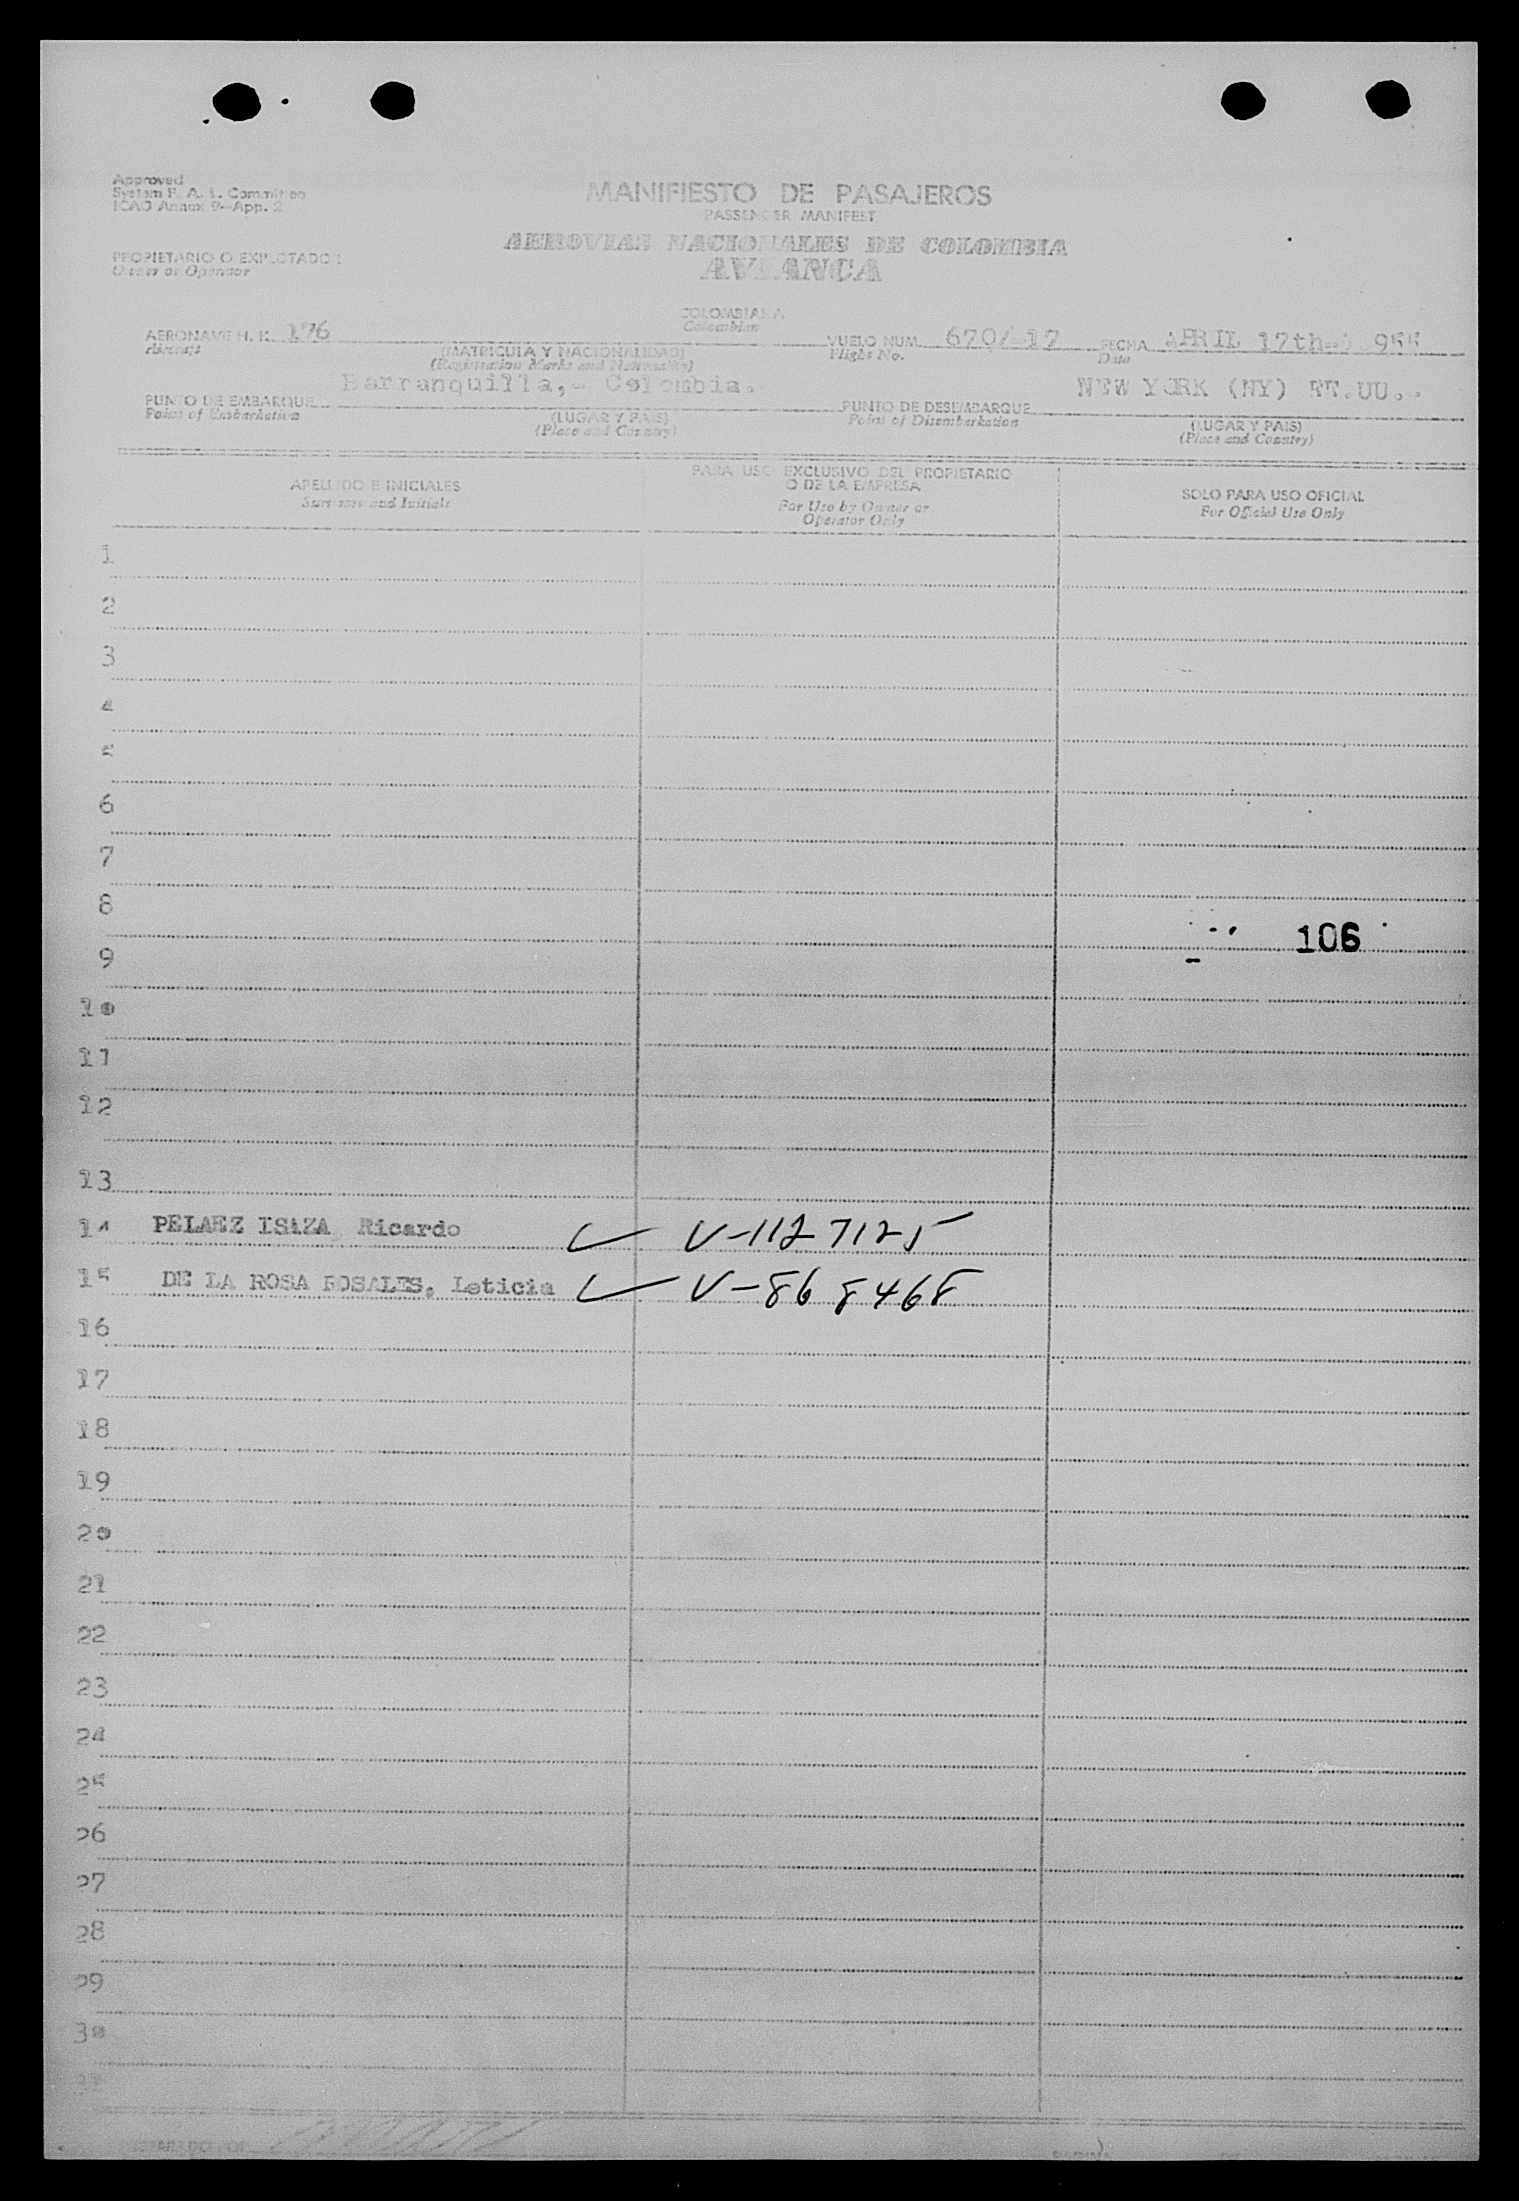 Approved
System F. A. L. Committee
ICAO Annex 9—App. 2
MANIFIESTO DE PASAJEROS
PASSENGER MANIFEST
AEROVIAS NACIONALES DE COLOMBIA
AVIANCA
PROPIETARIO O EXPLOTADOR:
Owner or Operator
COLOMBIANA
Colombian
AERONAVE H. K. 176
Aircraft
(MATRICULA Y NACIONALIDAD)
(Registration Marks and Nationality)
VUELO NUM. 670/-17
Flight No.
FECHA APRIL 17th-1.955
Date
Barranquilla,- Colombia.-
NEW YORK (NY) EE.UU.-
PUNTO DE EMBARQUE
Point of Embarkation
(LUGAR Y PAIS)
(Place and Country)
PUNTO DE DESEMBARQUE
Point of Disembarkation
(LUGAR Y PAIS)
(Place and Country)
APELLIDO E INICIALES
Surname and Initials
PARA USO EXCLUSIVO DEL PROPIETARIO
O DE LA EMPRESA
For Use by Owner or
Operator Only
SOLO PARA USO OFICIAL
For Official Use Only
1
2
3
4
5
6
7
8
106
9
10
11
12
13
14 PELAEZ ISAZA, Ricardo V-1127125
15 DE LA ROSA ROSALES, Leticia V-868468
16
17
18
19
20
21
22
23
24
25
26
27
28
29
30